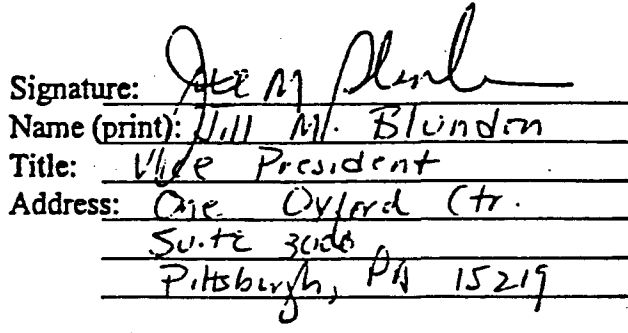 Signature: Jill M Blundon
Name (print): Jill M. Blundon
Title: Vice President
Address: One Oxford Ctr.
Suite 3000
Pittsburgh, PA 15219